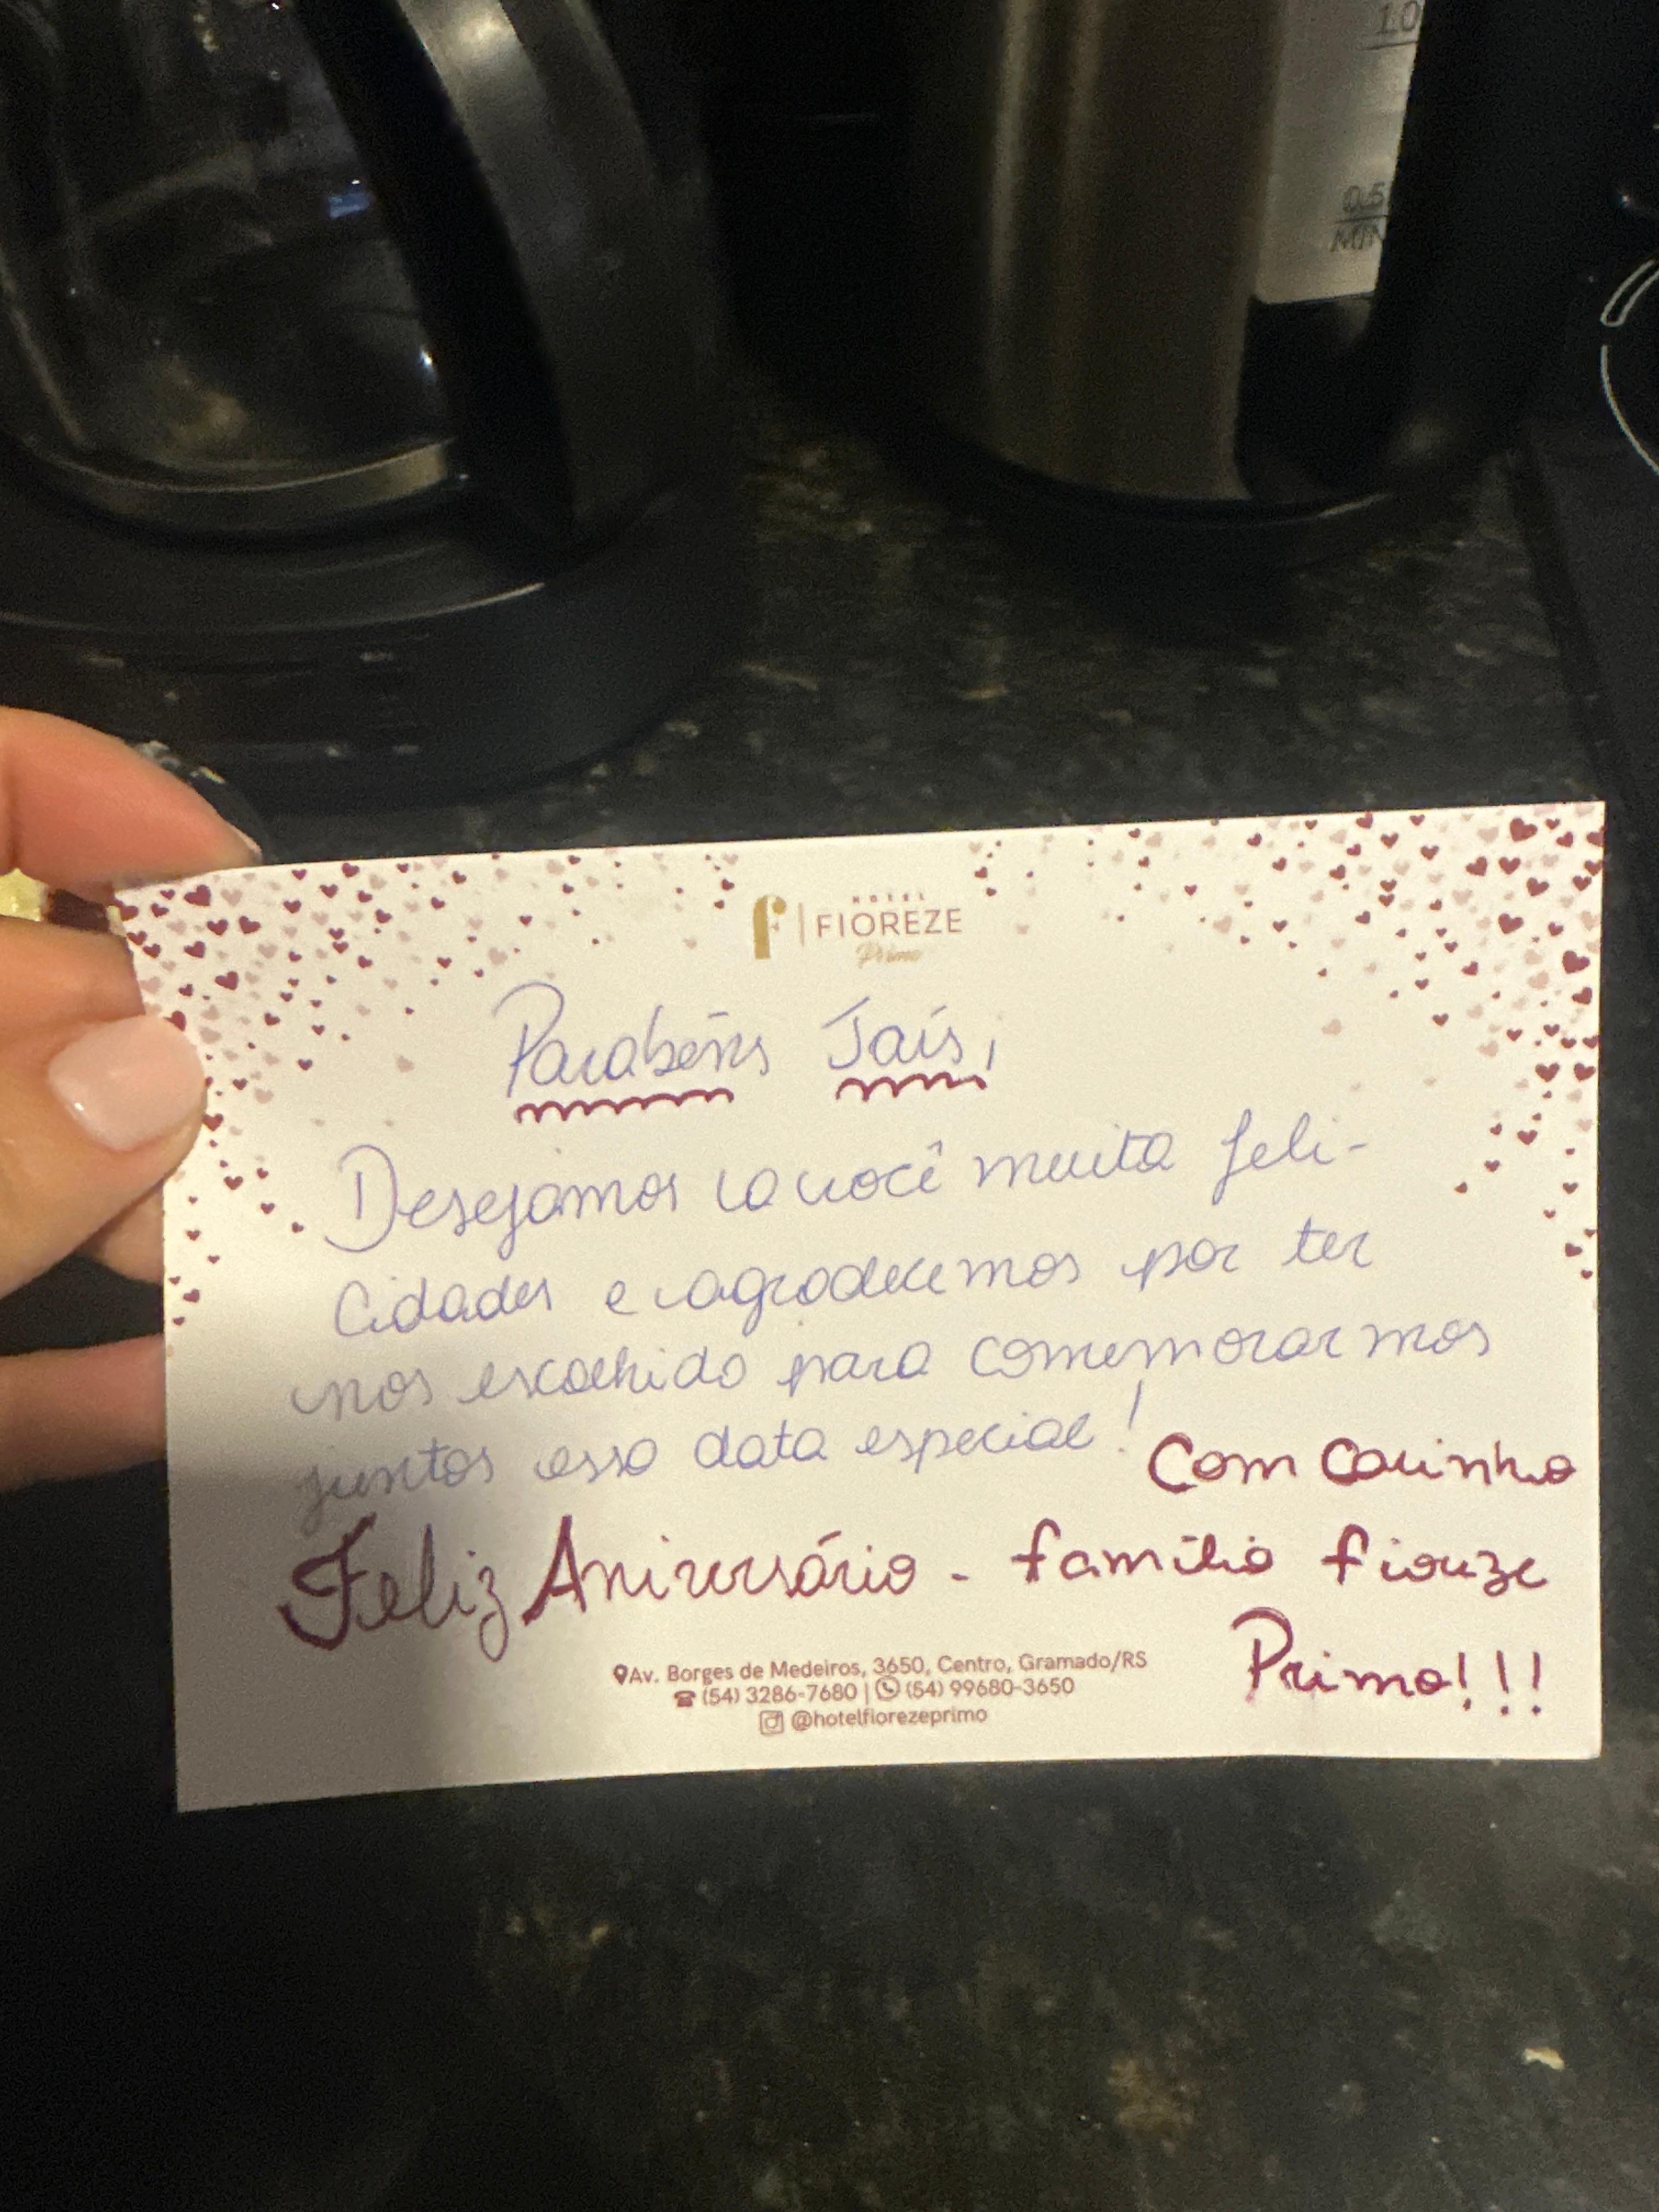 1.0
0.5
MIN
HOTEL
f | FIOREZE
Primo
Parabéns Taís,
Desejamos a você muita feli-
cidades e agradecemos por ter
nos escolhido para comemorarmos
juntos essa data especial!
Com carinho
Feliz Aniversário - família fioreze
Primo!!!
Av. Borges de Medeiros, 3650, Centro, Gramado/RS
(54) 3286-7680 | (54) 99680-3650
@hotelfiorezeprimo